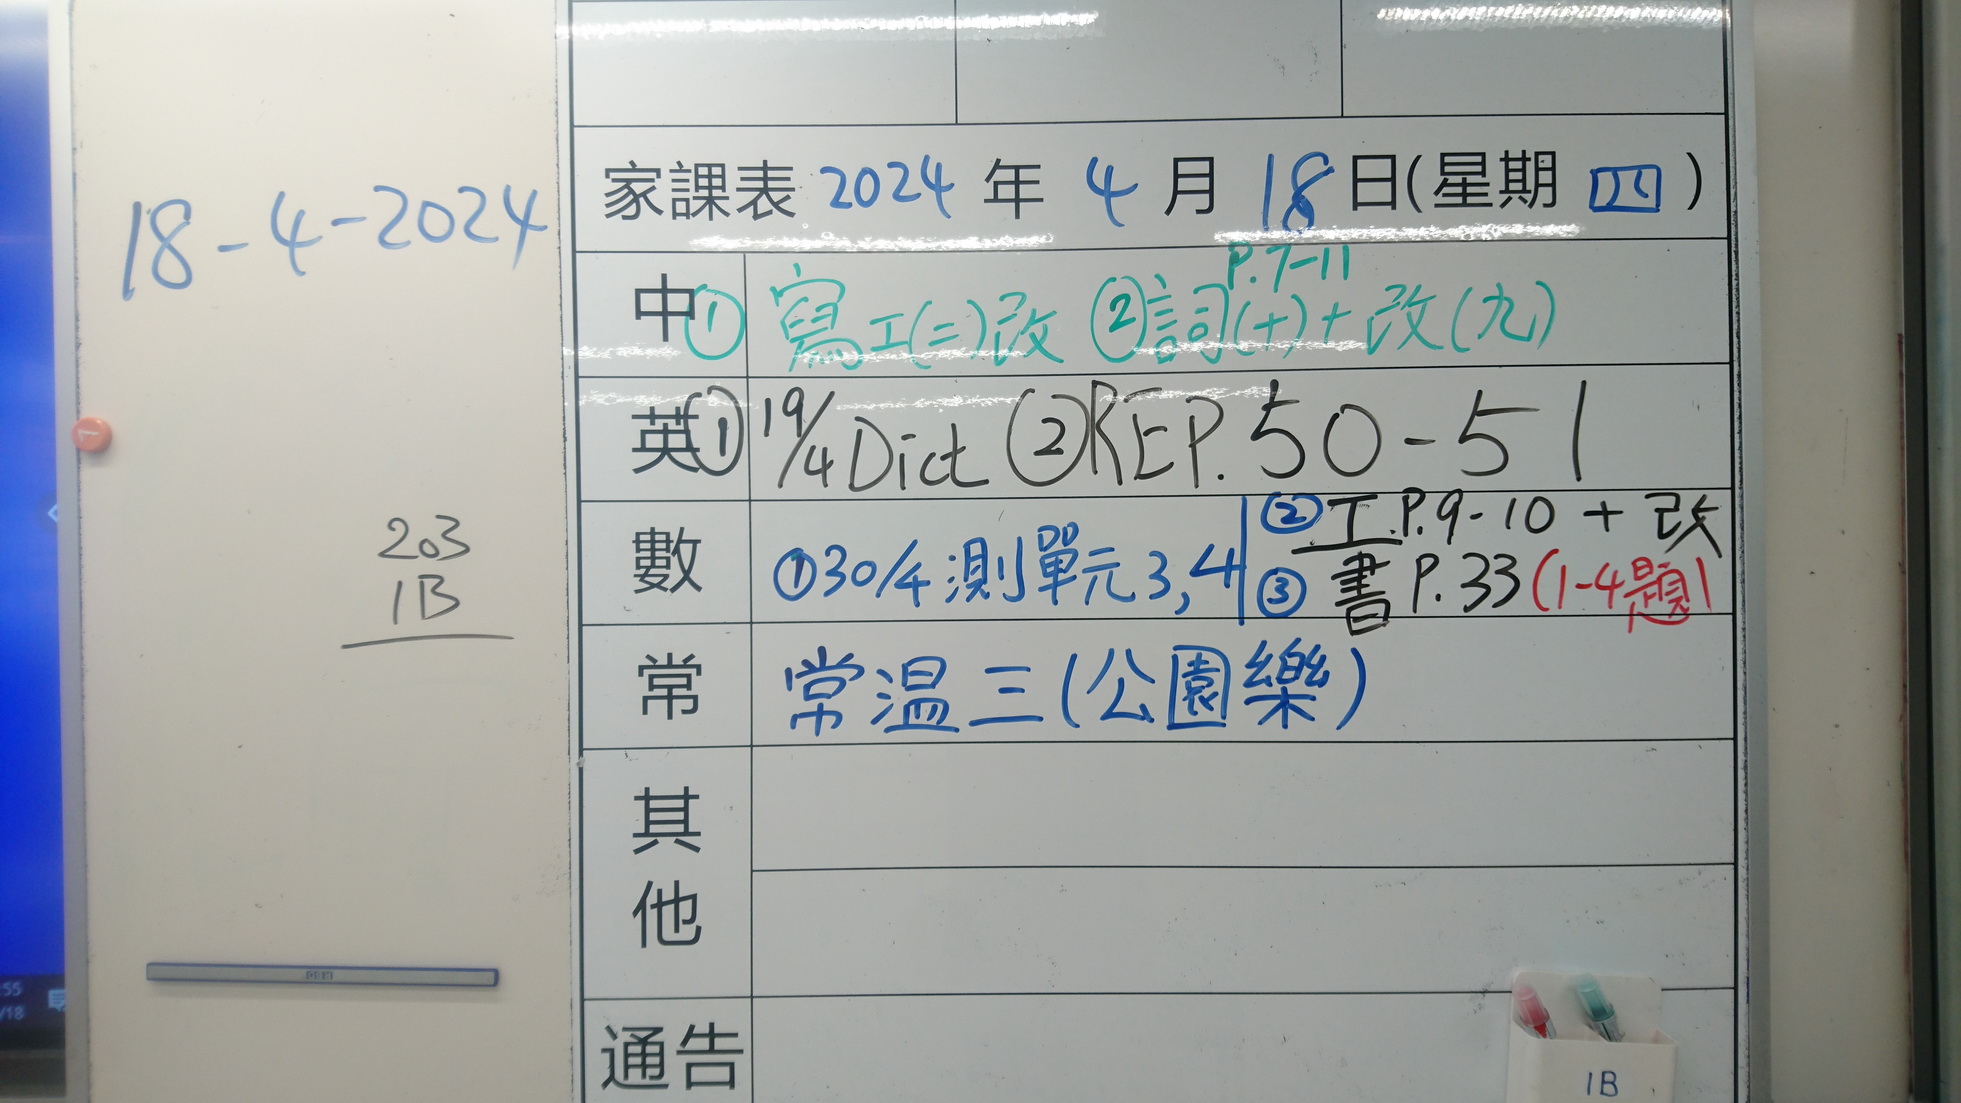 18-4-2024
203
1B
家課表 2024 年 4 月 18 日(星期 四)
中 ① 寫工(二)改 ② 詞(十)+改(九) P.7-11
英 ① 19/4 Dict ② REP.50-51
數 ① 30/4 測單元3,4 ② 工 P.9-10 + 改
③ 書 P.33 (1-4題)
常 常温三(公園樂)
其他
通告
1B
:55
/18